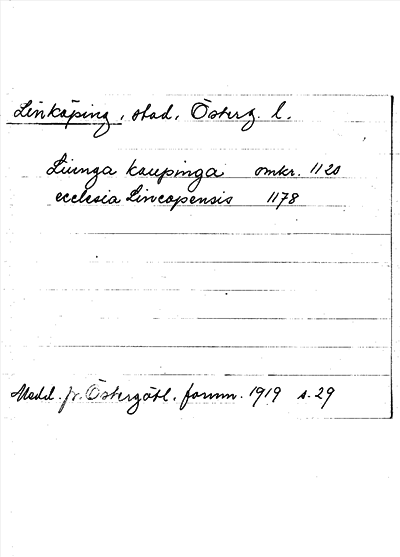 Linköping, stad, Österg. l.
Liunga kaupinga omkr. 1120
ecclesia Lincopensis 1178
Medd. fr. Östergötl. fornm. 1919 s. 29